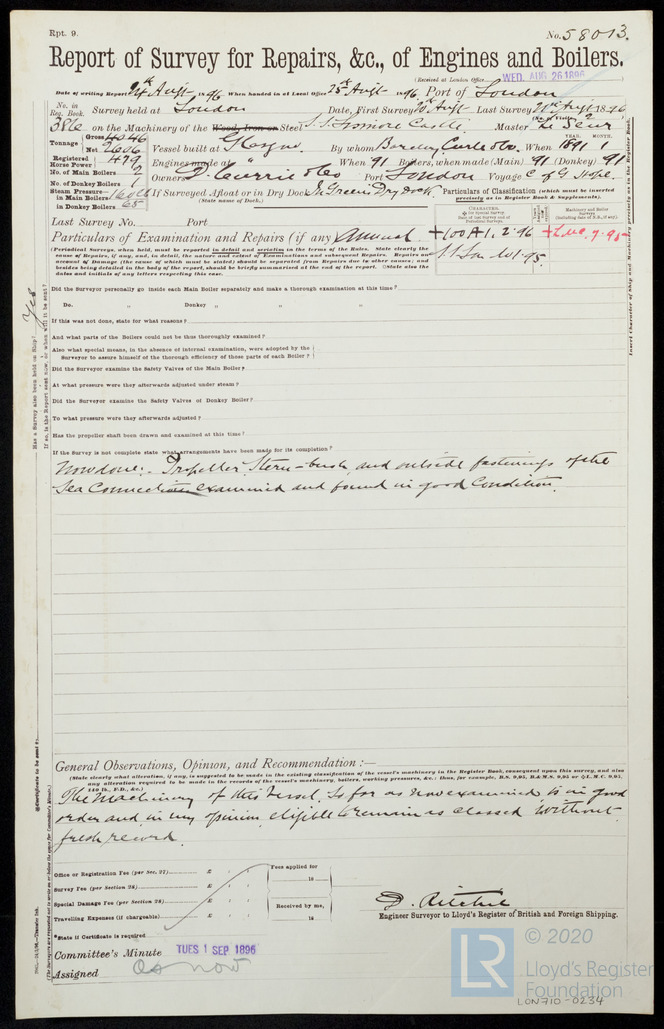 Rpt. 9.
No. 58013.
Report of Survey for Repairs, &c., of Engines and Boilers.
(Received at London Office WED. AUG 26 1896 )
Date of writing Report 24th Augt 1896 When handed in at Local Office 25th Augt 1896 Port of London
No. in Reg. Book. 386 Survey held at London Date, First Survey 20th Augt Last Survey 21st Augt 1896
(No. of Visits 2 )
on the Machinery of the Wood, Iron or Steel S.S. Lismore Castle Master Le Seur
Tonnage Gross 4046 Net 2606 Vessel built at Glasgow By whom Barclay, Curle & Co. When 1891 YEAR. MONTH.
Registered Horse Power 479 Engines made at " When '91 Boilers, when made (Main) 91 (Donkey) 91
No. of Main Boilers 2 Owners D. Currie & Co Port London Voyage C of G Hope.
No. of Donkey Boilers 1
Steam Pressure in Main Boilers 160 lb in Donkey Boilers 65 If Surveyed Afloat or in Dry Dock In Greens Dry Dock
(State name of Dock.)
Particulars of Classification (which must be inserted precisely as in Register Book & Supplements).
Last Survey No. Port
CHARACTER.
Machinery and Boiler Surveys
+100A1. 2.96 +LMC. 7.95
S.S. Lon. No1.95.
Particulars of Examination and Repairs (if any) Annual
(Periodical Surveys, when held, must be reported in detail and seriatim in the terms of the Rules. State clearly the
cause of Repairs, if any, and, in detail, the nature and extent of Examinations and subsequent Repairs. Repairs on
account of Damage (the cause of which must be stated) should be separated from Repairs due to other causes; and
besides being detailed in the body of the report, should be briefly summarised at the end of the report. State also the
dates and initials of any letters respecting this case.
Did the Surveyor personally go inside each Main Boiler separately and make a thorough examination at this time?
Do. " Donkey " " "
If this was not done, state for what reasons?
And what parts of the Boilers could not be thus thoroughly examined?
Also what special means, in the absence of internal examination, were adopted by the
Surveyor to assure himself of the thorough efficiency of those parts of each Boiler?
Did the Surveyor examine the Safety Valves of the Main Boiler?
At what pressure were they afterwards adjusted under steam?
Did the Surveyor examine the Safety Valves of Donkey Boiler?
To what pressure were they afterwards adjusted?
Has the propeller shaft been drawn and examined at this time?
If the Survey is not complete state what arrangements have been made for its completion?
Now done:- Propeller, Stern-bush, and outside fastenings of the
Sea Connections examined and found in good Condition.
Has a Survey also been held on Ship? Yes
If so, is the Report sent now, or when will it be sent?
Insert Character of Ship and Machinery precisely as in the Register Book.
General Observations, Opinion, and Recommendation :—
(State clearly what alteration, if any, is suggested to be made in the existing classification of the vessel's machinery in the Register Book, consequent upon this survey, and also
any alteration required to be made in the records of the vessel's machinery, boilers, working pressures, &c.: thus, for example, B.S. 9,95, B.&M.S. 9,95 or L.M.C. 9,95,
140 lb., F.D., &c.)
The Machinery of this Vessel, So far as now examined is in good
order and in my opinion eligible to remain as classed without
fresh record.
Office or Registration Fee (per Sec. 27) £ Fees applied for
Survey Fee (per Section 28) £ 18
Special Damage Fee (per Section 28) £ Received by me,
Travelling Expenses (if chargeable) £ 18
*State if Certificate is required
D. Ritchie
Engineer Surveyor to Lloyd's Register of British and Foreign Shipping.
Committee's Minute TUES 1 SEP 1896
Assigned as now
LR © 2020
Lloyd's Register
Foundation
LON710-0234